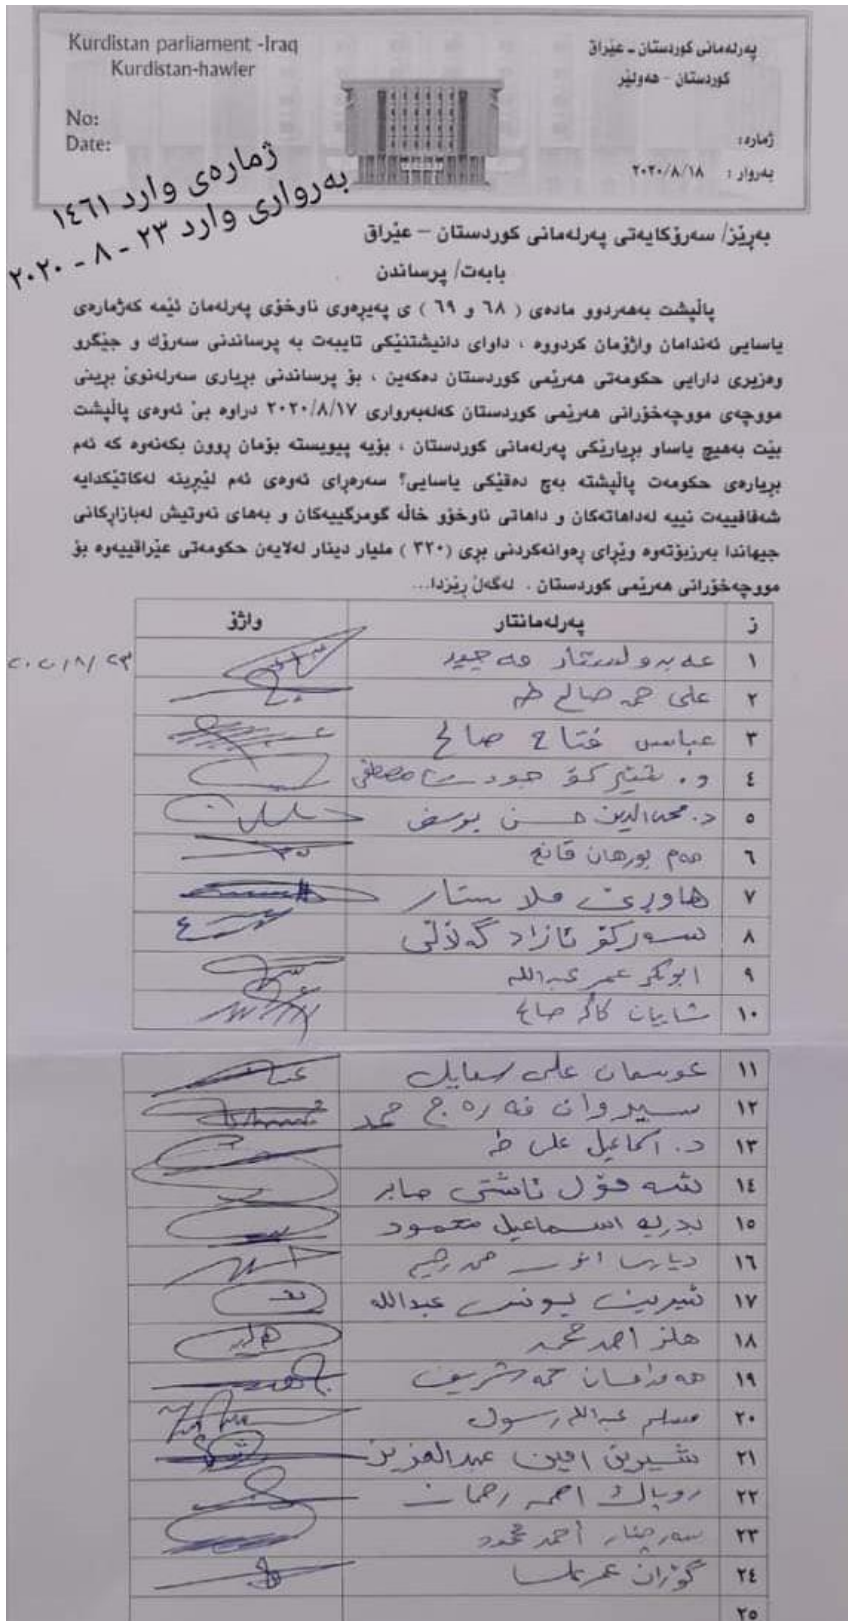 Kurdistan parliament -Iraq
Kurdistan-hawler
No:
Date:
پەرلەمانی کوردستان ـ عێراق
کوردستان - هەولێر
ژمارە:
بەروار : ٢٠٢٠/٨/١٨
ژمارەی وارد ١٤٦١
بەرواری وارد ٢٣ - ٨ - ٢٠٢٠
بەرێز/ سەرۆکایەتی پەرلەمانی کوردستان – عێراق
بابەت/ پرساندن
پاڵپشت بەهەردوو مادەی ( ٦٨ و ٦٩ ) ی پەیرەوی ناوخۆی پەرلەمان ئێمە کەژمارەی
یاسایی ئەندامان واژۆمان کردووە ، داوای دانیشتنێکی تایبەت بە پرساندنی سەرۆك و جێگرو
وەزیری دارایی حکومەتی هەرێمی کوردستان دەکەین ، بۆ پرساندنی بریاری سەرلەنوێ برینی
مووچەی مووچەخۆرانی هەرێمی کوردستان کەلەبەرواری ٢٠٢٠/٨/١٧ دراوە بێ ئەوەی پاڵپشت
بێت بەهیچ یاساو بریارێکی پەرلەمانی کوردستان ، بۆیە پیویستە بۆمان ڕوون بکەنەوە کە ئەم
بریارەی حکومەت پاڵپشتە بەچ دەقێکی یاسایی؟ سەرەرای ئەوەی ئەم لێبرینە لەکاتێکدایە
شەفافییەت نییە لەداهاتەکان و داهاتی ناوخۆو خاڵە گومرگییەکان و بەهای نەوتیش لەبازارەکانی
جیهاندا بەرزبۆتەوە وێرای ڕەوانەکردنی بری (٣٢٠ ) ملیار دینار لەلایەن حکومەتی عێراقییەوە بۆ
مووچەخۆرانی هەرێمی کوردستان . لەگەڵ ڕێزدا...
ز پەرلەمانتار واژۆ
١ عەبدولستار مەجید ٢٠٢٠/٨/٢٣
٢ علی حمە صالح طە
٣ عباس فتاح صالح
٤ د. شێرکۆ جودت مصطفی
٥ د. محی‌الدین حسن یوسف
٦ مەم بورهان قانع
٧ هاوڕێ مەلا ستار
٨ سەرکۆ ئازاد گەڵاڵی
٩ ابوبکر عمر عبدالله
١٠ شایان کاکە صالح
١١ عوسمان علی
١٢ سیروان فەرەج محمد
١٣ د. اسماعیل علی طە
١٤ شەمۆل ئاشتی صابر
١٥ بدریە اسماعیل محمود
١٦ انور حمە رحیم
١٧ شیرین یونس عبدالله
١٨ هلز احمد محمد
١٩ حمە شریف
٢٠ مسلم عبدالله رسول
٢١ شیرین امین عبدالعزیز
٢٢ روپاك احمد رحمان
٢٣ سەرچنار أحمد محمود
٢٤ گۆران عمر
٢٥